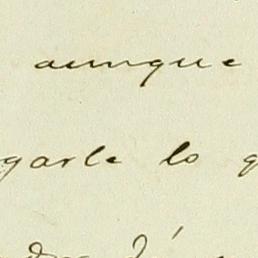 aunque
garle lo q